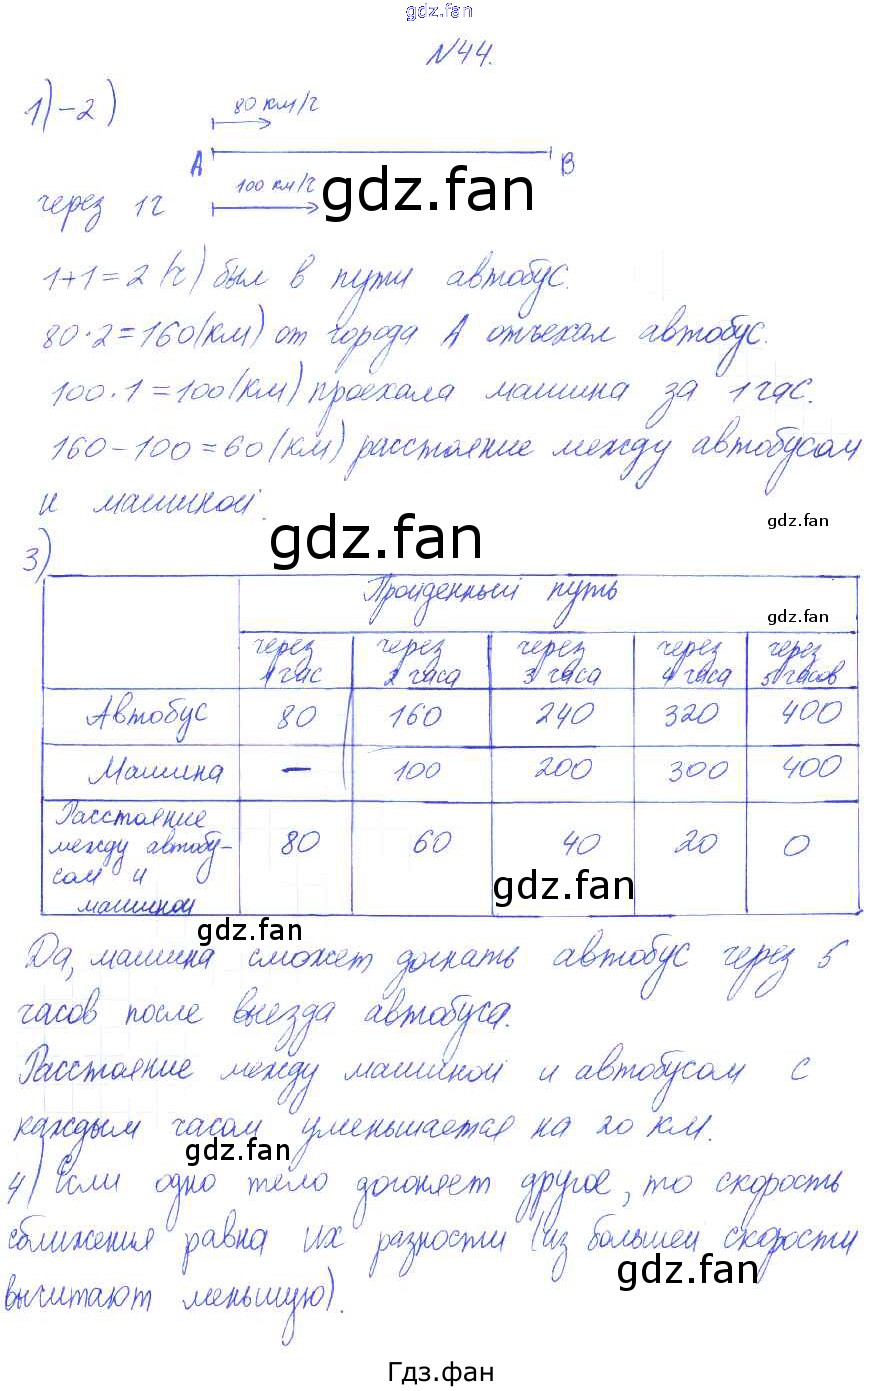 gdz.fan
№44.
1)-2)
80 км/ч
А В
100 км/ч gdz.fan
через 1ч
1+1=2(ч) был в пути автобус.
80·2=160(км) от города А отъехал автобус.
100·1=100(км) проехала машина за 1 час.
160-100=60(км) расстояние между автобусом
и машиной.
gdz.fan gdz.fan
3)
Пройденный путь
gdz.fan
через 1 час через 2 часа через 3 часа через 4 часа через 5 часов
Автобус 80 160 240 320 400
Машина — 100 200 300 400
Расстояние
между автобу- 80 60 40 20 0
сом и
машиной
gdz.fan
gdz.fan
Да, машина сможет догнать автобус через 5
часов после выезда автобуса.
Расстояние между машиной и автобусом с
каждым часом уменьшается на 20 км.
gdz.fan
4) Если одно тело догоняет другое, то скорость
сближения равна их разности (из большей скорости
gdz.fan
вычитают меньшую).
Гдз.фан